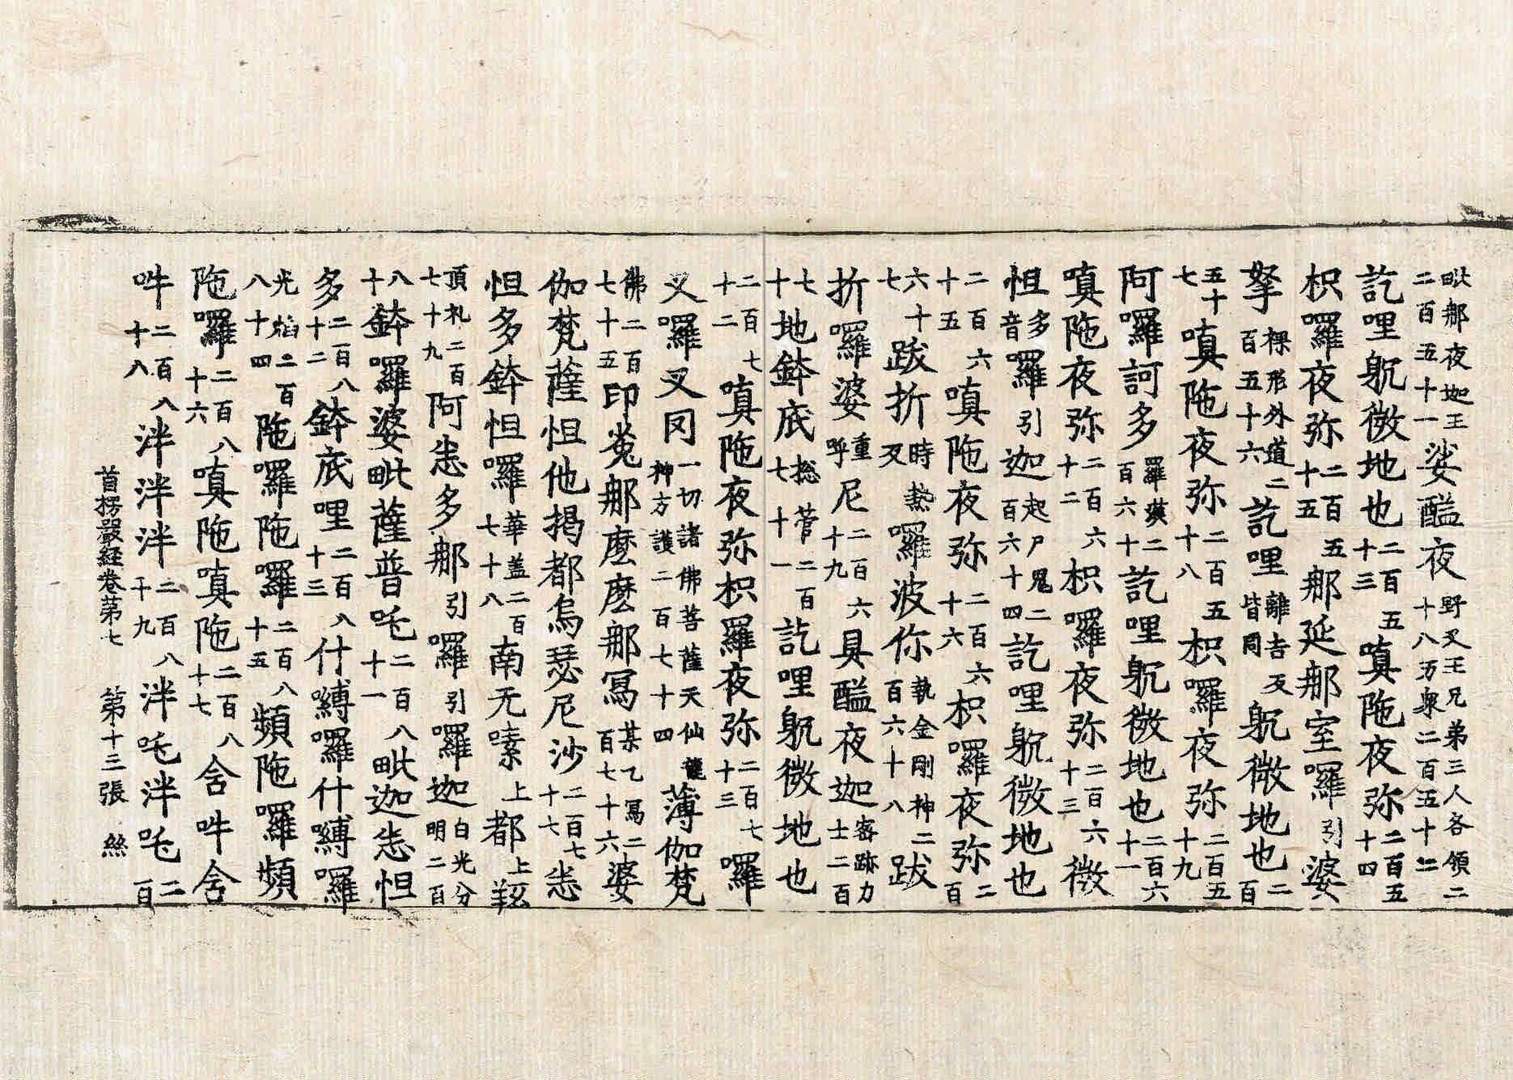 毗那夜迦王二百五十一娑醯夜野叉王兄弟三人各領二十八万衆二百五十二
訖哩躭微地也二百五十三嗔陁夜弥二百五十四
枳囉夜弥二百五十五那延那室囉引婆
拏裸形外道二百五十六訖哩離吉反皆同躭微地也二百五十七
嗔陁夜弥二百五十八枳囉夜弥二百五十九
阿囉訶多羅漢二百六十訖哩躭微地也二百六十一
嗔陁夜弥二百六十二枳囉夜弥二百六十三微
怛多音囉引迦起尸鬼二百六十四訖哩躭微地也
二百六十五嗔陁夜弥二百六十六枳囉夜弥二百六十七
跋折時熱反囉波你執金剛神二百六十八跋
折囉婆重呼尼二百六十九具醯夜迦密跡力士二百
七十地鉢底七揔管二百七十一訖哩躭微地也
二百七十二嗔陁夜弥枳囉夜弥二百七十三囉
叉囉叉罔一切諸佛菩薩天仙龍神方護二百七十四薄伽梵
佛二百七十五印㝹那麽麽那冩某乙冩二百七十六婆
伽梵薩怛他揭都烏瑟尼沙二百七十七悉
怛多鉢怛囉華盖二百七十八南无㗭上都上𦍕
頂礼二百七十九阿悉多那引囉引囉迦白光分明二百
八十鉢囉婆毗薩普吒二百八十一毗迦悉怛
多二百八十二鉢底哩二百八十三什嚩囉什嚩囉
光熖二百八十四陁囉陁囉二百八十五頻陁囉頻
陁囉二百八十六嗔陁嗔陁二百八十七含𤙖含
𤙖二百八十八泮泮泮二百八十九泮吒泮吒二百
首楞嚴經卷第七 第十三張 絲